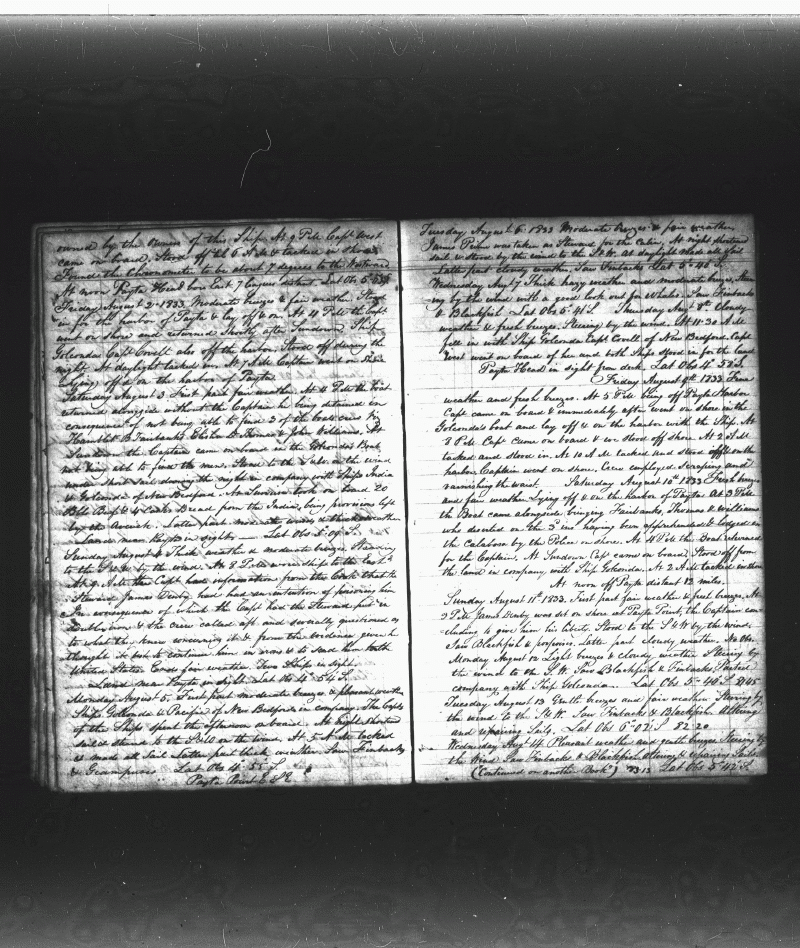 owned by the owners of this Ship. At 9 P.M. Capt West
came on board, Stood off till 6 A.M. & tacked in shore
Found the Chronometer to be about 7 degrees to the Westward
At noon Payta Head bore East 7 leagues distant Lat Obs 5°
Friday August 2. 1833. Moderate breezes & fair weather. Stood
in for the harbor of Payta & lay off & on. At 4 P.M. the Capt
went on shore and returned shortly after Sundown. Ship
Golconda Capt Covell also off the harbor. Stood off during the
night. At daylight tacked in. At 7 A.M. Captain went on shore
Lying off & on the harbor of Payta.
Saturday August 3. First part fair weather. At 4 P.M. the boat
returned alongside without the Captain he being detained in
consequence of not being able to find 3 of the boats crew Viz
B Fairbanks, Thomas & John Williams. At
Sundown the Captain came on board in the Golconda's Boat,
not being able to find the men, Stood to the by the wind
under short sail during the night in company with Ships India
& Golconda of New Bedford. At Sundown took on board 20
Bbls Beef & 4 Casks Bread from the India, being provisions left
by the Latter part moderate winds & weather
Land near Payta in sight — Lat Obs 5° 09' S.
Sunday August 4 Thick weather & moderate breezes Steering
to the S W by the wind. At 8 P.M. wore ship to the East
At 9 A.M. the Capt had information from the Cook that the
Steward James Denby had had an intention of poisoning him
In consequence of which the Capt had the Steward put in
irons & the crew called aft and severally questioned as
to what they knew concerning it & from the evidence given he
thought it best to continue him in irons & to send him to the
United States. Ends fair weather. Two Ships in sight.
Land near Payta in sight Lat Obs 4° 54' S.
Monday August 5. First part moderate breezes & pleasant weather
Ships Golconda & Pacific of New Bedford in company. The Capts
of the Ships spent the afternoon on board. At night shortened
sail & stood to the S W on the wind. At 5 A.M. tacked
& made all sail Latter part thick weather. Saw Finbacks
& Grampuses. Lat Obs 4° 55' S.
Payta Point E S E
Tuesday August 6. 1833 Moderate breezes & fair weather.
James was taken as Steward for the Cabin. At night shortened
sail & stood by the wind to the S.W. At daylight made all sail
Latter part cloudy weather. Saw Finbacks Lat 5° 40' S.
Wednesday Augt 7 Thick hazy weather and moderate breezes. Steer
ing by the wind with a good look out for Whales. Saw Finbacks
& Blackfish Lat Obs 5° 41' S. Thursday Augt 8th Cloudy
weather & fresh breezes. Steering by the wind. At 11.30 A.M.
fell in with Ship Golconda Capt Covell of New Bedford. Capt
West went on board of her and both Ships stood in for the land
Payta Head in sight from deck. Lat Obs 4° 58' S.
Friday August 9th 1833. Fine
weather and fresh breezes. At 5 P.M. being off Payta Harbor
Capt came on board & immediately after went on shore in the
Golconda's boat and lay off & on the harbor with the Ship. At
8 P.M. Capt came on board & we stood off shore. At 2 A.M.
tacked and stood in. At 10 A.M. tacked and stood off & on the
harbor. Captain went on shore. Crew employed scraping and
varnishing the waist. Saturday August 10th 1833 Fresh breezes
and fair weather Lying off & on the harbor of Payta. At 3 P.M.
the Boat came alongside bringing Fairbanks, Thomas & Williams
who deserted on the 3d ins. having been apprehended & lodged in
the Calaboose by the Police on shore. At 4 P.M. the Boat returned
for the Captain. At Sundown Capt came on board. Stood off from
the land in company with Ship Golconda. At 2 A.M. tacked in shore
At noon off Payta distant 12 miles.
Sunday August 11th 1833. First part fair weather & fresh breezes. At
3 P.M. James Denby was set on shore at Payta Point, the Captain con-
cluding to give him his liberty. Stood to the S & W by the wind.
Saw Blackfish & porpoises. Latter part cloudy weather. No Obs.
Monday August 12 Light breezes & cloudy weather Steering by
the wind to the S.W. Saw Blackfish & Finbacks Parted
company with Ship Golconda. Lat Obs 5° 40' S. 81.45
Tuesday August 13 Gentle breezes and fair weather Steering by
the wind to the S & W. Saw Finbacks & Blackfish. Altering
and repairing Sails. Lat Obs 6° 02' S. 82.20
Wednesday Augt 14 Pleasant weather and gentle breezes. Steering by
the Wind. Saw Finbacks & Blackfish. Altering & repairing Sails.
(Continued on another Book) 83.13 Lat Obs 5° 42' S.